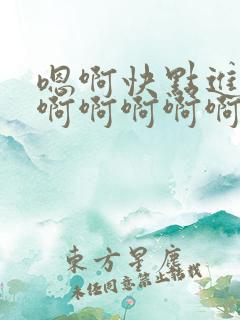 嗯啊快點進
啊啊啊啊啊
東方星塵
未经同意禁止转载